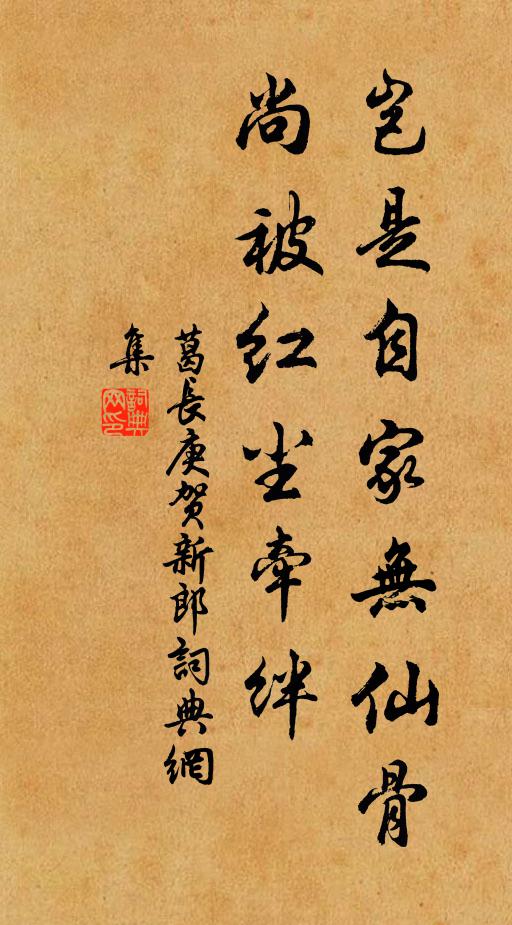 岂是自家無仙骨
尚被红尘牽绊
葛長庚贺新郎詞典網
集
詞典网印